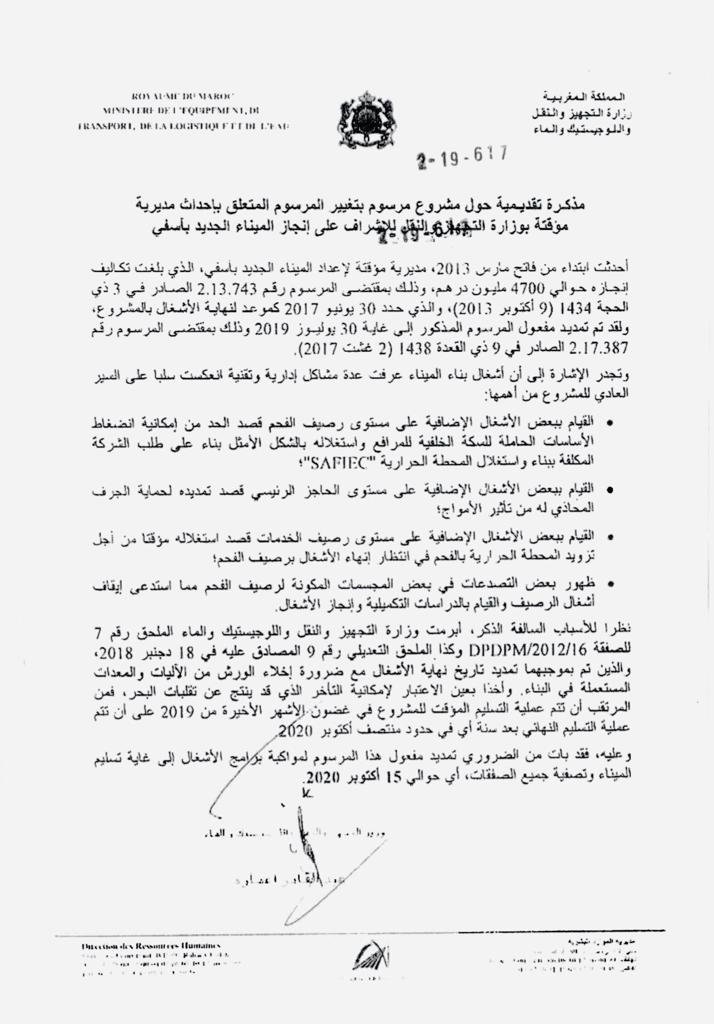 ROYAUME DU MAROC
MINISTERE DE L'EQUIPEMENT, DU
TRANSPORT, DE LA LOGISTIQUE ET DE L'EAU
المملكة المغربية
وزارة التجهيز والنقل
واللوجيستيك والماء
2-19-617
مذكرة تقديمية حول مشروع مرسوم بتغيير المرسوم المتعلق بإحداث مديرية
مؤقتة بوزارة التجهيز والنقل للإشراف على إنجاز الميناء الجديد بأسفي
2-19-617
أحدثت ابتداء من فاتح مارس 2013، مديرية مؤقتة لإعداد الميناء الجديد بأسفي، الذي بلغت تكاليف
إنجازه حوالي 4700 مليون درهم، وذلك بمقتضى المرسوم رقم 2.13.743 الصادر في 3 ذي
الحجة 1434 (9 أكتوبر 2013)، والذي حدد 30 يونيو 2017 كموعد لنهاية الأشغال بالمشروع،
ولقد تم تمديد مفعول المرسوم المذكور إلى غاية 30 يوليوز 2019 وذلك بمقتضى المرسوم رقم
2.17.387 الصادر في 9 ذي القعدة 1438 (2 غشت 2017).
وتجدر الإشارة إلى أن أشغال بناء الميناء عرفت عدة مشاكل إدارية وتقنية انعكست سلبا على السير
العادي للمشروع من أهمها:
• القيام ببعض الأشغال الإضافية على مستوى رصيف الفحم قصد الحد من إمكانية انضغاط
الأساسات الحاملة للسكة الخلفية للمرافع واستغلاله بالشكل الأمثل بناء على طلب الشركة
المكلفة ببناء واستغلال المحطة الحرارية "SAFIEC"؛
• القيام ببعض الأشغال الإضافية على مستوى الحاجز الرئيسي قصد تمديده لحماية الجرف
المحاذي له من تأثير الأمواج؛
• القيام ببعض الأشغال الإضافية على مستوى رصيف الخدمات قصد استغلاله مؤقتا من أجل
تزويد المحطة الحرارية بالفحم في انتظار إنهاء الأشغال برصيف الفحم؛
• ظهور بعض التصدعات في بعض المجسمات المكونة لرصيف الفحم مما استدعى إيقاف
أشغال الرصيف والقيام بالدراسات التكميلية وإنجاز الأشغال.
نظرا للأسباب السالفة الذكر، أبرمت وزارة التجهيز والنقل واللوجيستيك والماء الملحق رقم 7
للصفقة DPDPM/2012/16 وكذا الملحق التعديلي رقم 9 المصادق عليه في 18 دجنبر 2018،
والذين تم بموجبهما تمديد تاريخ نهاية الأشغال مع ضرورة إخلاء الورش من الآليات والمعدات
المستعملة في البناء. وأخذا بعين الاعتبار لإمكانية التأخر الذي قد ينتج عن تقلبات البحر، فمن
المرتقب أن تتم عملية التسليم المؤقت للمشروع في غضون الأشهر الأخيرة من 2019 على أن تتم
عملية التسليم النهائي بعد سنة أي في حدود منتصف أكتوبر 2020.
وعليه، فقد بات من الضروري تمديد مفعول هذا المرسوم لمواكبة برامج الأشغال إلى غاية تسليم
الميناء وتصفية جميع الصفقات، أي حوالي 15 أكتوبر 2020.
عبد القادر اعمارة
Direction des Ressources Humaines
مديرية الموارد البشرية